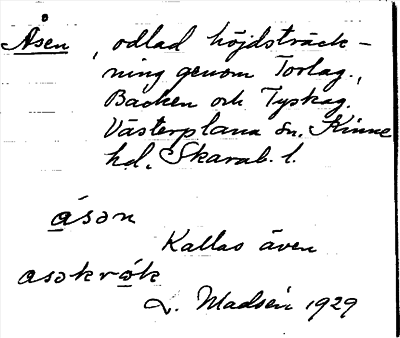 Åsen, odlad höjdsträck-
ning genom Torlag.,
Backen och Tyskag.
Västerplana sn. Kinne
hd. Skarab. l.
åsən
Kallas även
asəkrǫk
L. Madsén 1929